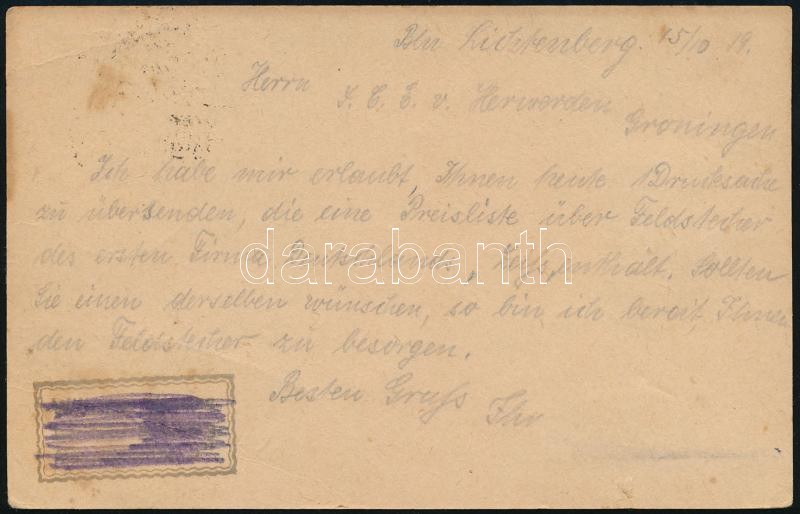 Bln Lichtenberg. 15/10 19.
Herrn
J. C. E. v. Herwerden
Groningen
Ich habe mir erlaubt, Ihnen heute 1 Drucksache
zu übersenden, die eine Preisliste über Feldstecher
des ersten Firma Deutschlands, Zeiss, enthält. Sollten
Sie einen derselben wünschen, so bin ich bereit, Ihnen
den Feldstecher zu besorgen.
Besten Gruss
Ihr
darabanth